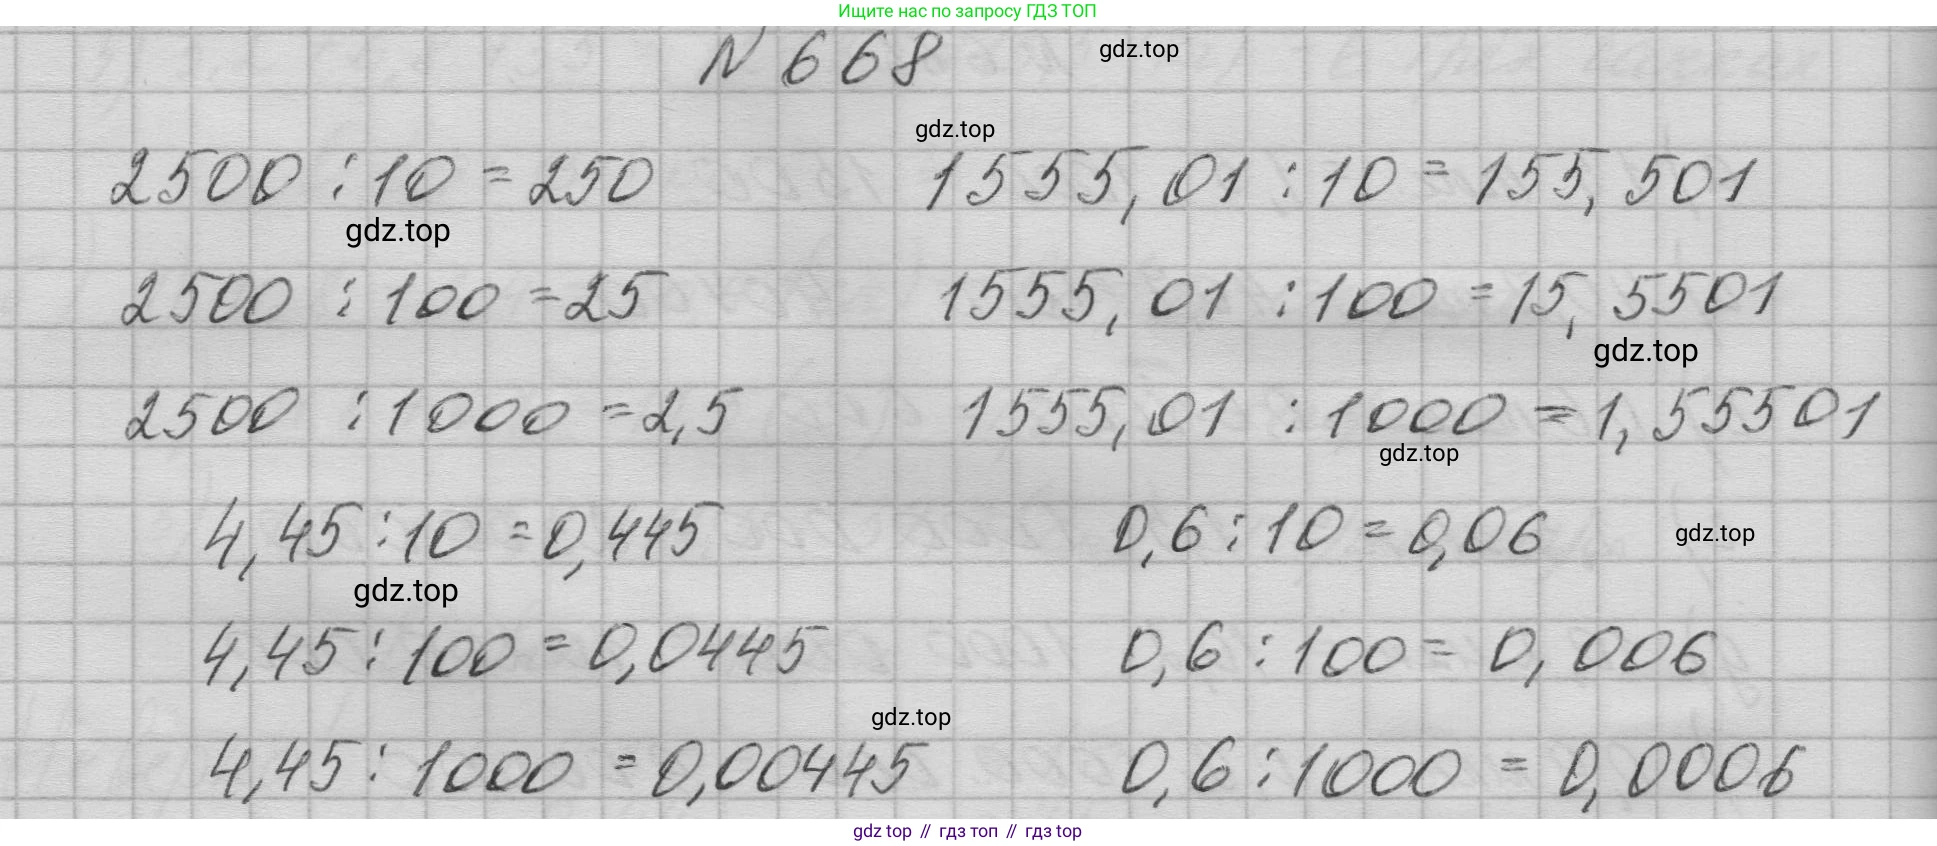 Ищите нас по запросу ГДЗ ТОП
N 668 gdz.top
gdz.top
2500 : 10 = 250 1555,01 : 10 = 155,501
gdz.top
2500 : 100 = 25 1555,01 : 100 = 15,5501
gdz.top
2500 : 1000 = 2,5 1555,01 : 1000 = 1,55501
gdz.top
4,45 : 10 = 0,445 0,6 : 10 = 0,06 gdz.top
gdz.top
4,45 : 100 = 0,0445 0,6 : 100 = 0,006
gdz.top
4,45 : 1000 = 0,00445 0,6 : 1000 = 0,0006
gdz top // гдз топ // гдз top